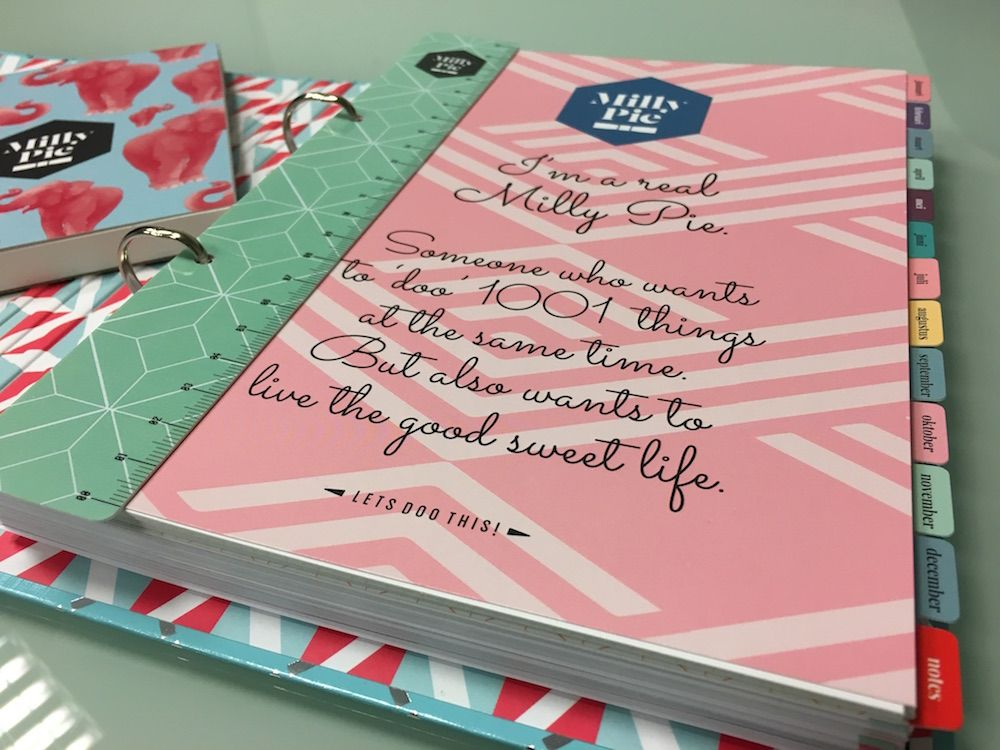 Milly
Pie
Milly
Pie
Milly
Pie
I'm a real
Milly Pie.
Someone who wants
to 'doo' 1001 things
at the same time.
But also wants to
live the good sweet life.
LETS DOO THIS!
00
01
02
03
januari
februari
maart
april
mei
juni
juli
augustus
september
oktober
november
december
notes